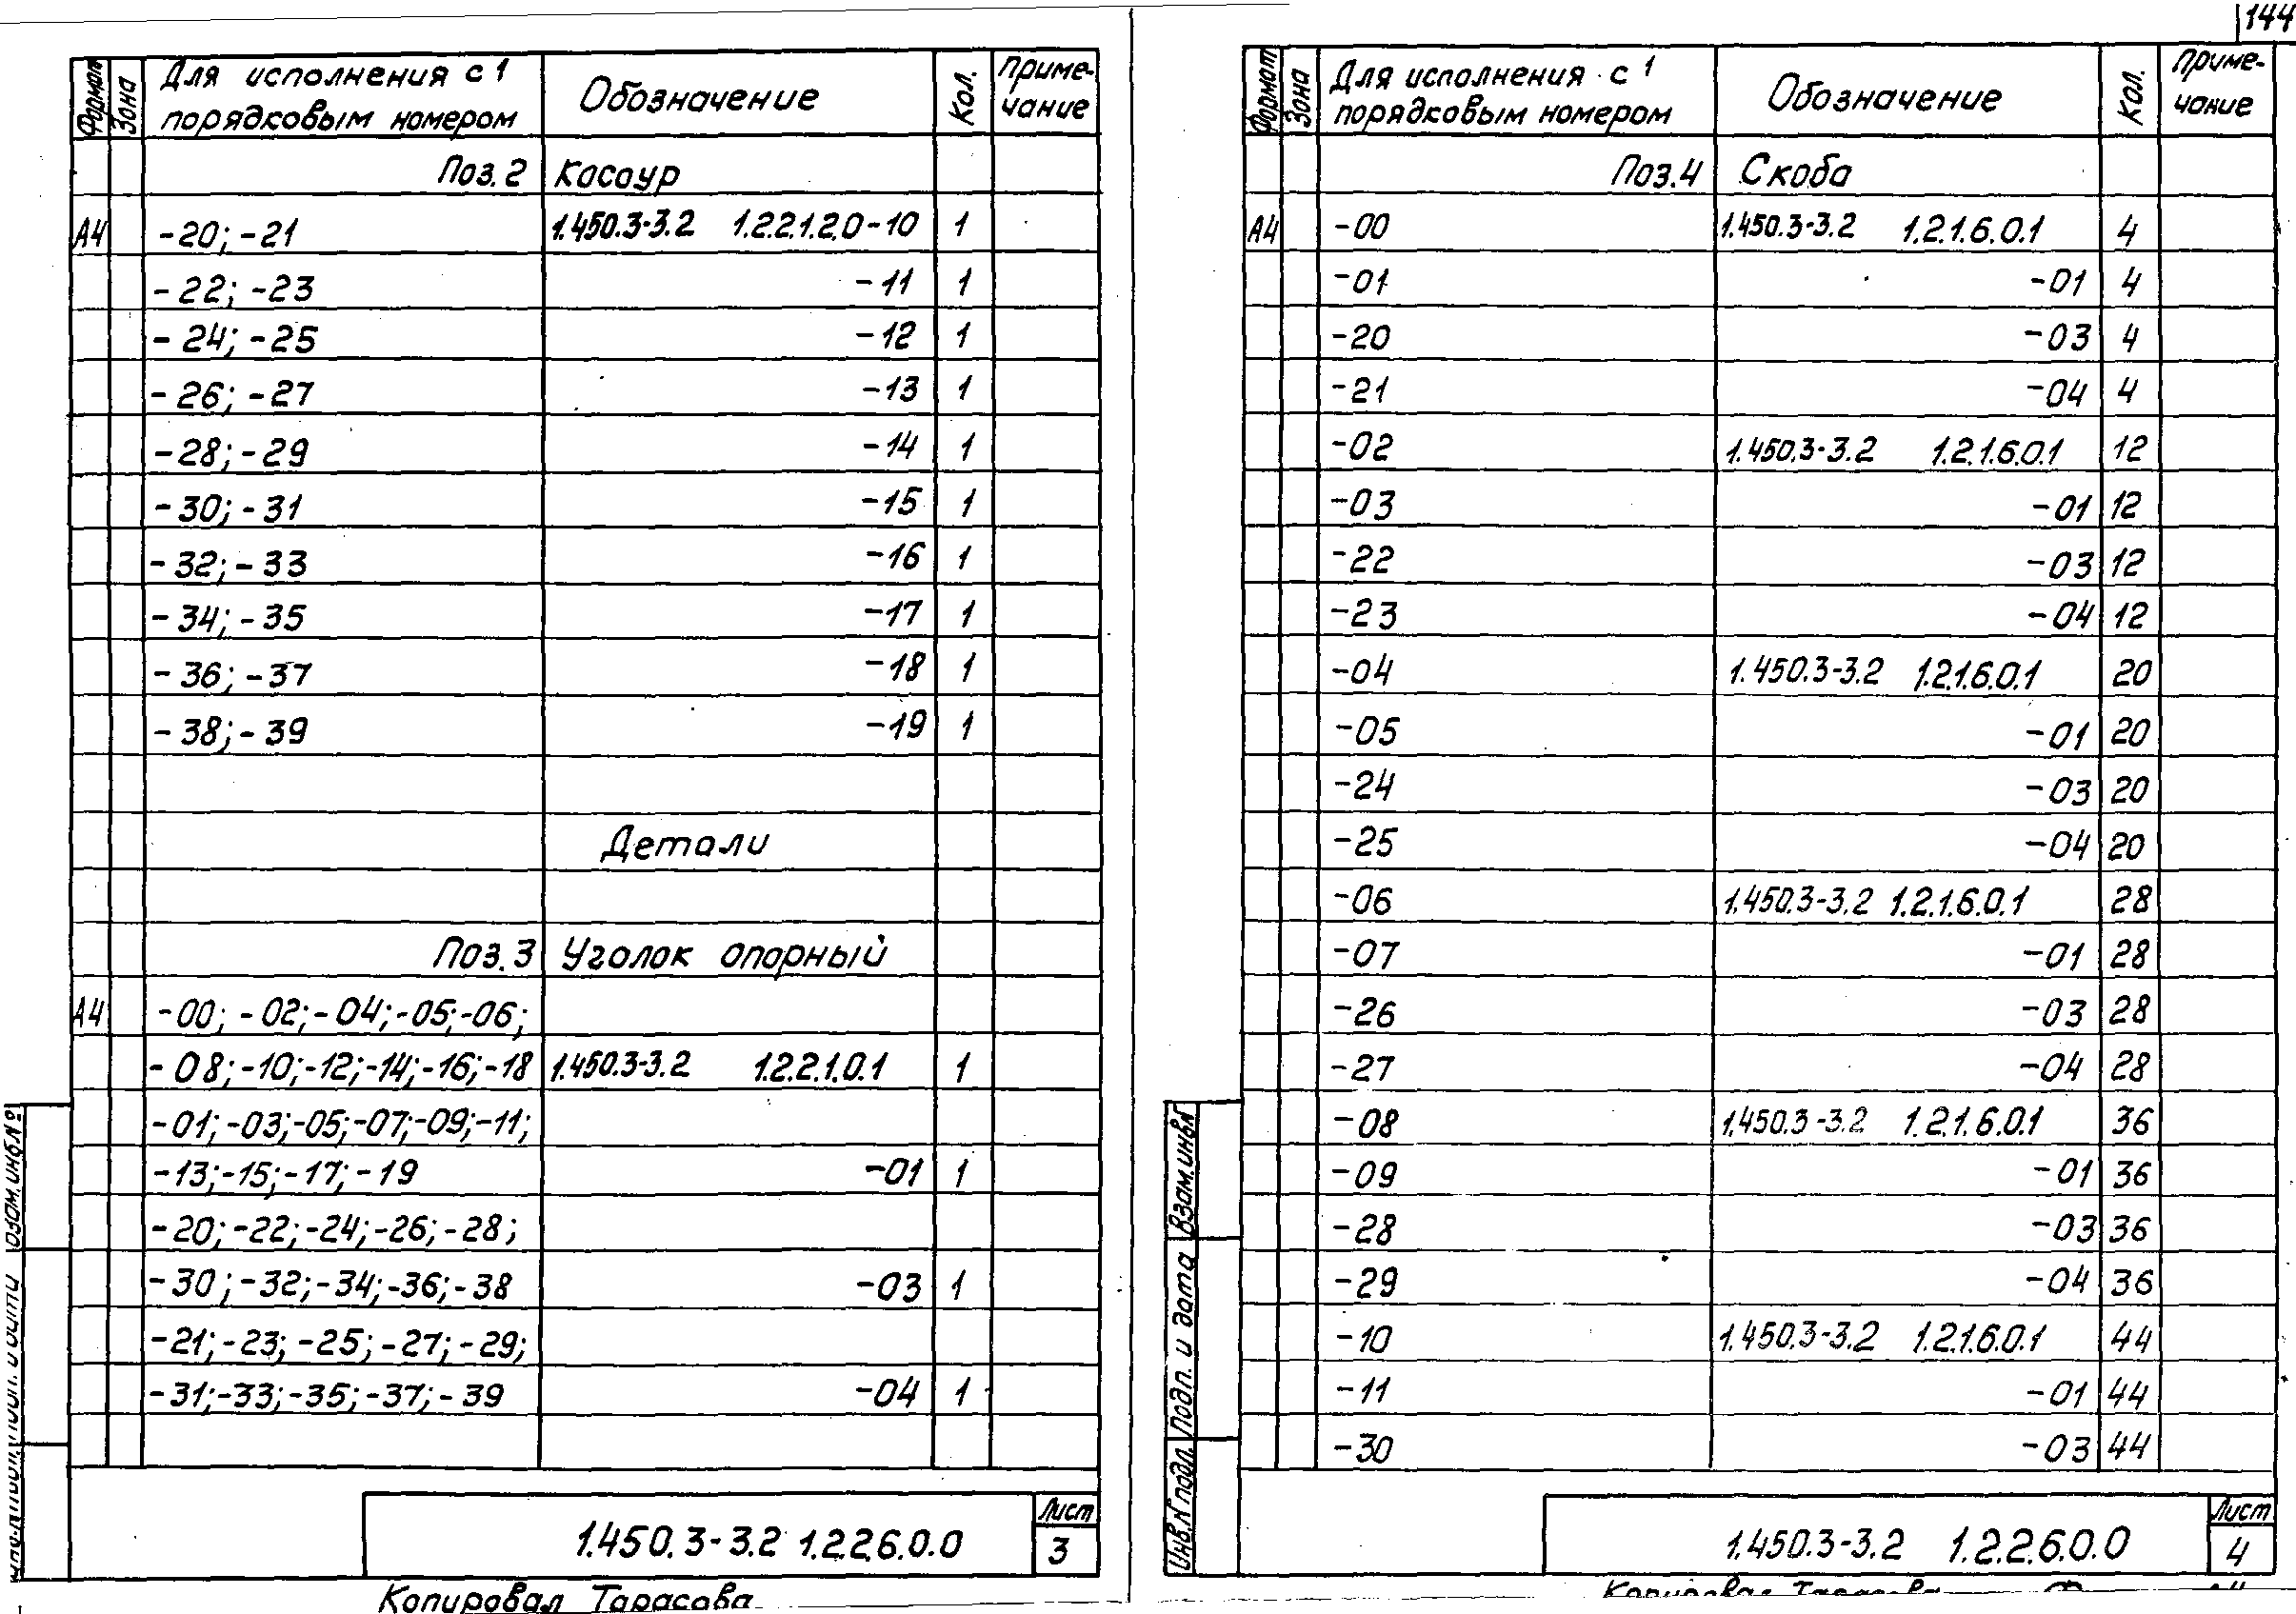 144
Формат Зона Для исполнения с 1 порядковым номером Обозначение Кол. Приме-чание
Поз. 2 Косоур
А4 -20; -21 1.450.3-3.2 1.2.2.1.2.0-10 1
-22; -23 -11 1
-24; -25 -12 1
-26; -27 -13 1
-28; -29 -14 1
-30; -31 -15 1
-32; -33 -16 1
-34; -35 -17 1
-36; -37 -18 1
-38; -39 -19 1
Детали
Поз. 3 Уголок опорный
А4 -00; -02; -04; -05; -06;
-08; -10; -12; -14; -16; -18 1.450.3-3.2 1.2.2.1.0.1 1
-01; -03; -05; -07; -09; -11;
-13; -15; -17; -19 -01 1
-20; -22; -24; -26; -28;
-30; -32; -34; -36; -38 -03 1
-21; -23; -25; -27; -29;
-31; -33; -35; -37; -39 -04 1
Взам. инв. №
1.450.3-3.2 1.2.2.6.0.0
Лист
3
Копировал Тарасова
Формат Зона Для исполнения с 1 порядковым номером Обозначение Кол. Приме-чание
Поз. 4 Скоба
А4 -00 1.450.3-3.2 1.2.1.6.0.1 4
-01 -01 4
-20 -03 4
-21 -04 4
-02 1.450.3-3.2 1.2.1.6.0.1 12
-03 -01 12
-22 -03 12
-23 -04 12
-04 1.450.3-3.2 1.2.1.6.0.1 20
-05 -01 20
-24 -03 20
-25 -04 20
-06 1.450.3-3.2 1.2.1.6.0.1 28
-07 -01 28
-26 -03 28
-27 -04 28
-08 1.450.3-3.2 1.2.1.6.0.1 36
-09 -01 36
-28 -03 36
-29 -04 36
-10 1.450.3-3.2 1.2.1.6.0.1 44
-11 -01 44
-30 -03 44
Инв. № подл. Подп. и дата Взам. инв. №
1.450.3-3.2 1.2.2.6.0.0
Лист
4
Копировал Тарасова